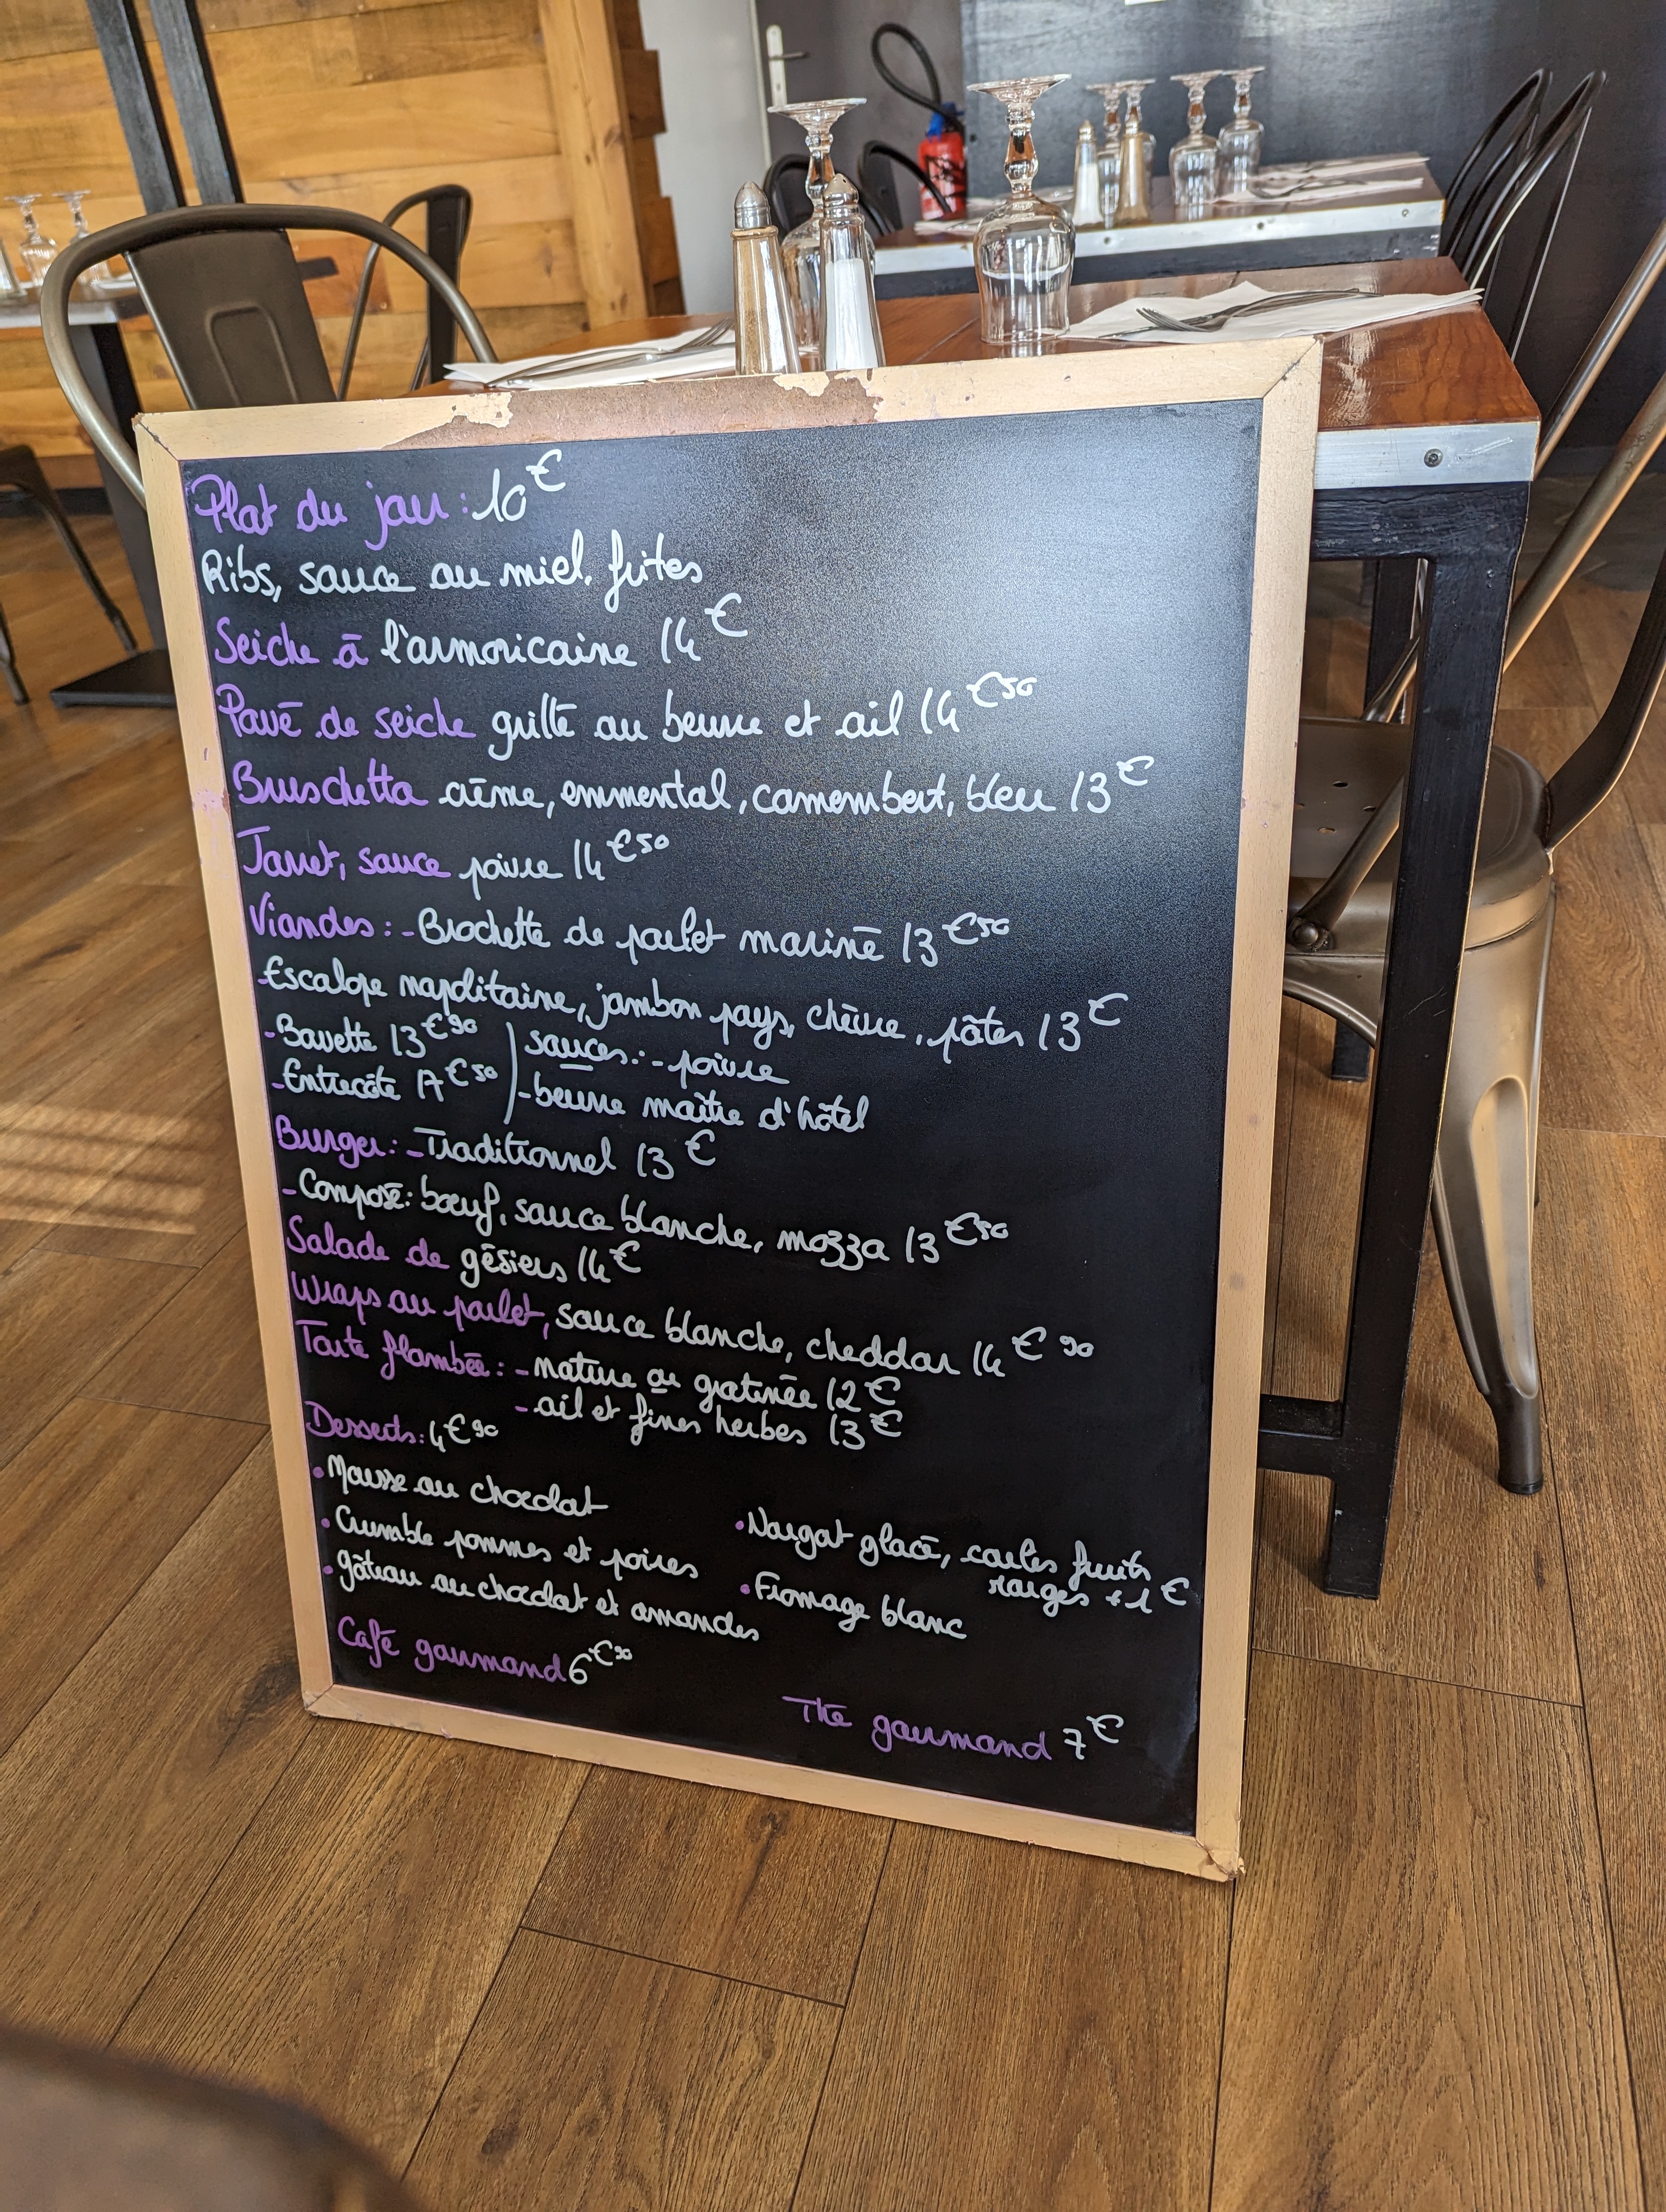 Plat du jour : 10€
Ribs, sauce au miel, frites
Seiche à l'armoricaine 14€
Pavé de seiche grillé au beurre et ail 14€50
Bruschetta crème, emmental, camembert, bleu 13€
Jarret, sauce poivre 14€50
Viandes : - Brochette de poulet mariné 13€50
- Escalope napolitaine, jambon pays, chèvre, pâtes 13€
- Bavette 13€90 ) sauces : - poivre
- Entrecôte 17€50 ) - beurre maître d'hôtel
Burger : - Traditionnel 13€
- Composé : bœuf, sauce blanche, mozza 13€50
Salade de gésiers 14€
Wraps au poulet, sauce blanche, cheddar 14€90
Tarte flambée : - nature ou gratinée 12€
- ail et fines herbes 13€
Desserts : 4€90
• Mousse au chocolat
• Crumble pommes et poires
• gâteau au chocolat et amandes
• Nougat glacé, coulis fruits
rouges + 1€
• Fromage blanc
Café gourmand 6€90
Thé gourmand 7€